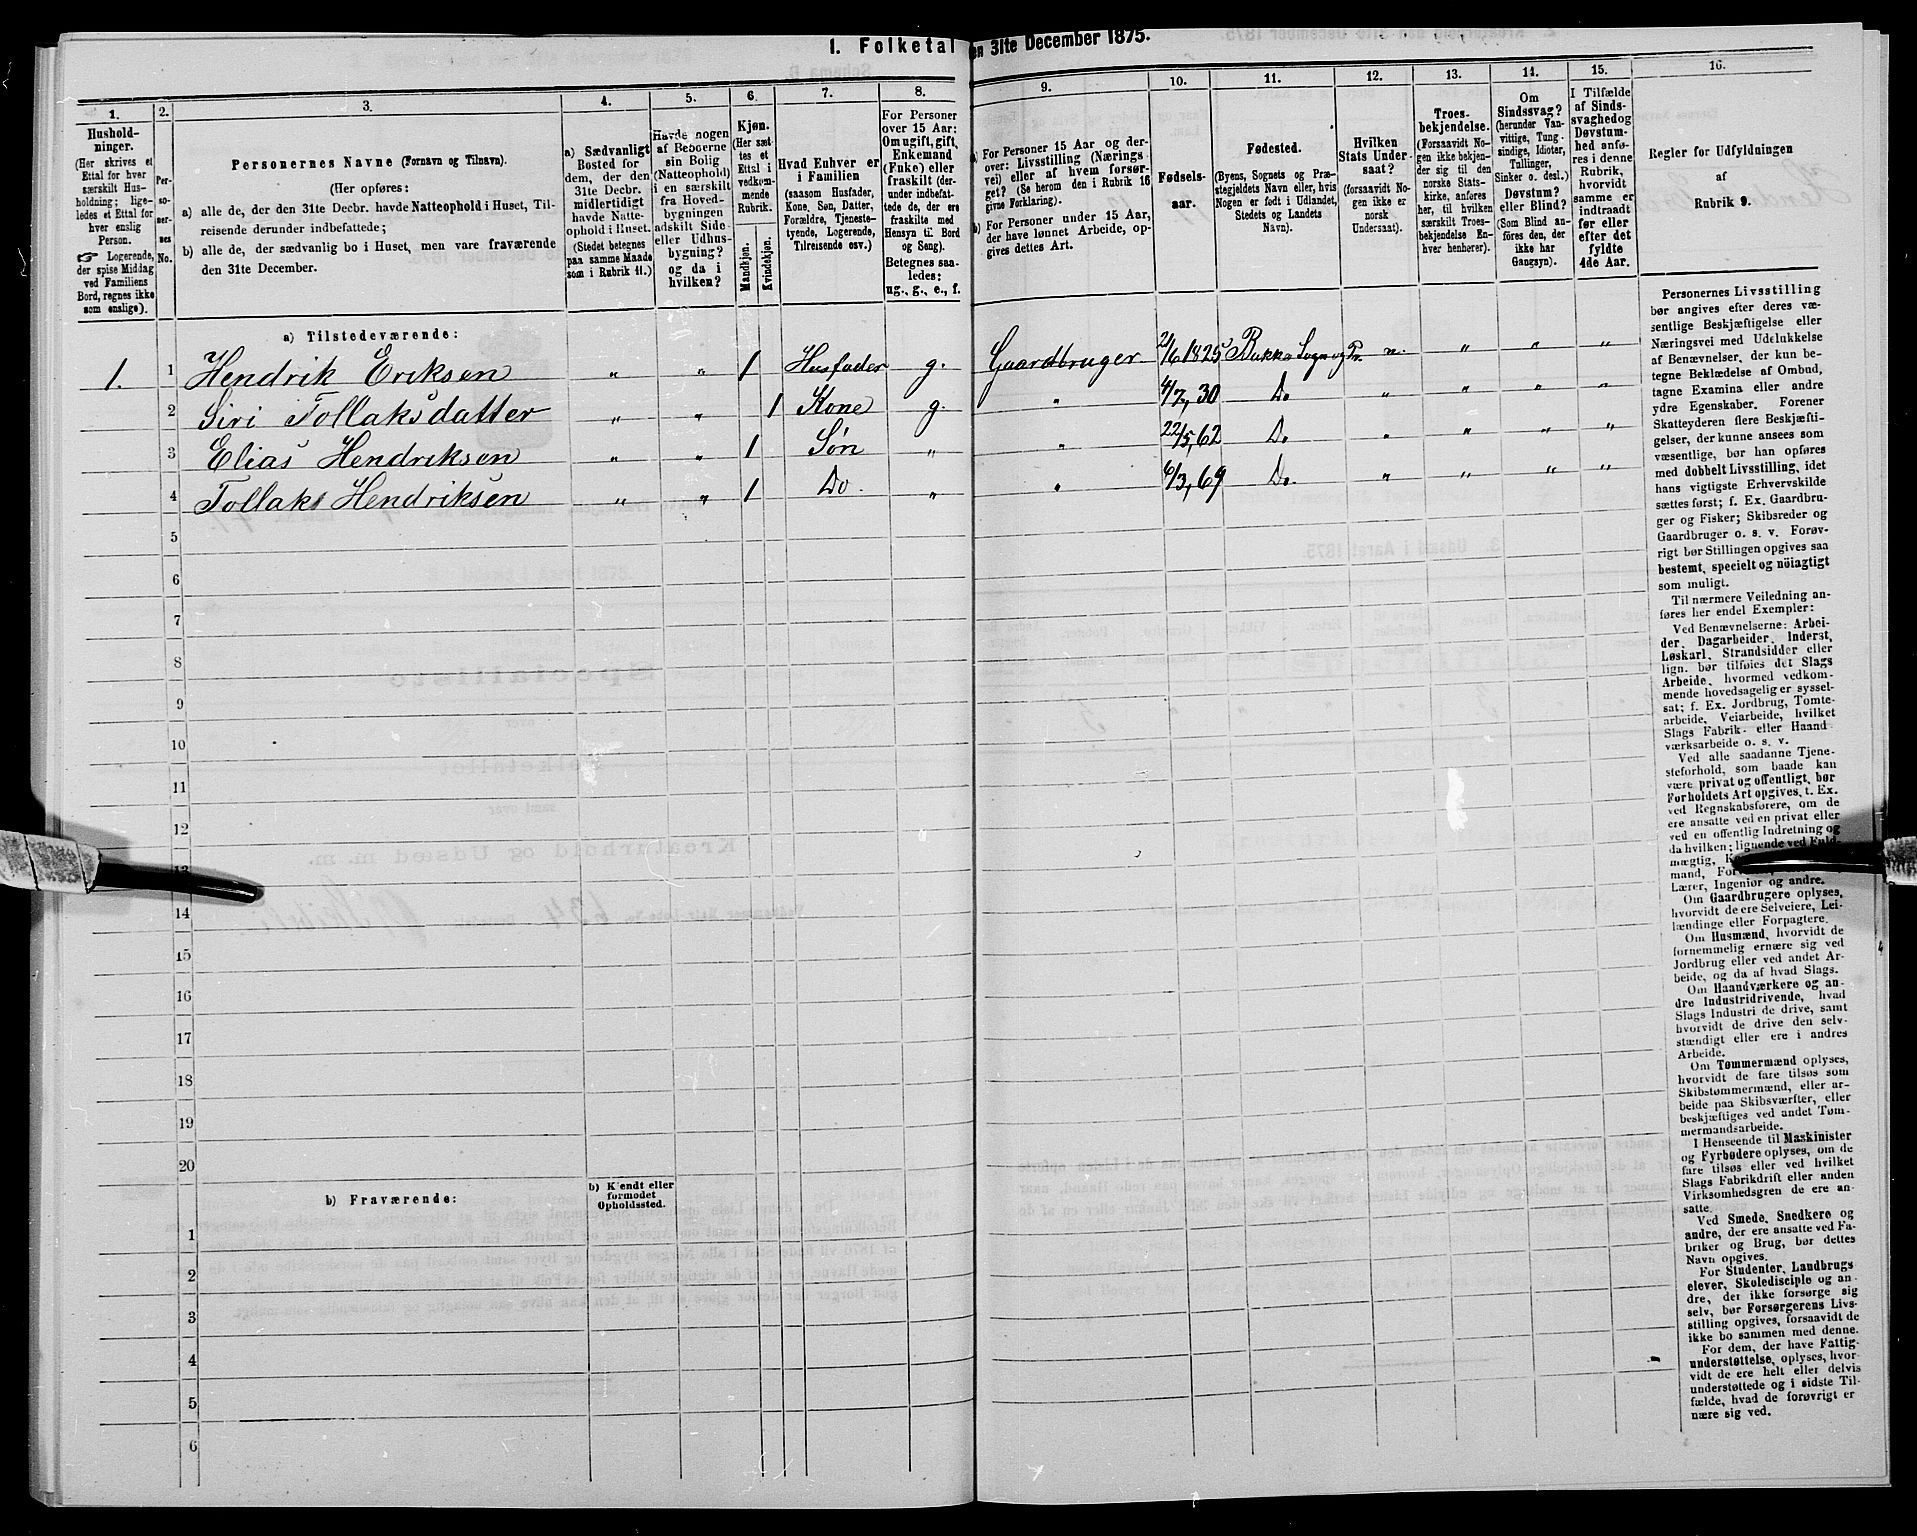 1. Folketal
en 31te December 1875.
1.
2.
3.
4.
5.
6.
7.
8.
9.
10.
11.
12.
13.
14.
15.
16.
Hushold-
ninger.
(Her skrives et
Ettal for hver
særskilt Hus-
holdning; lige-
ledes et Ettal for
hver enslig
Person.
☞ Logerende,
der spise Middag
ved Familiens
Bord, regnes ikke
som enslige).
Per-
so-
ner-
nes
No.
Personernes Navne (Fornavn og Tilnavn).
(Her opføres:
a) alle de, der den 31te Decbr. havde Natteophold i Huset, Til-
reisende derunder indbefattede;
b) alle de, der sædvanlig bo i Huset, men vare fraværende
den 31te December.
a) Sædvanligt
Bosted for
dem, der den
31te Decbr.
midlertidigt
havde Natte-
ophold i Huset.
(Stedet betegnes
paa samme Maade
som i Rubrik 11.)
Havde nogen
af Beboerne
sin Bolig
(Natteophold)
i en særskilt
fra Hoved-
bygningen
adskilt Side-
eller Udhus-
bygning?
og da i
hvilken?
Kjøn.
(Her sæt-
tes et
Ettal i
vedkom-
mende
Rubrik.
Mandkjøn.
Kvindekjøn.
Hvad Enhver er
i Familien
(saasom Husfader,
Kone, Søn, Datter,
Forældre, Tjeneste-
tyende, Logerende,
Tilreisende osv.)
For Personer
over 15 Aar:
Om ugift, gift,
Enkemand
(Enke) eller
fraskilt (der-
under indbefat-
tede, der ere
fraskilte med
Hensyn til Bord
og Seng).
Betegnes saa-
ledes:
ug., g., e., f.
a) For Personer 15 Aar og der-
over: Livsstilling (Nærings
vei) eller af hvem forsør-
get? (Se herom den i Rubrik 16
givne Forklaring).
b) For Personer under 15 Aar,
der have lønnet Arbeide, op-
gives dettes Art.
Fødsels-
aar.
Fødested.
(Byens, Sognets og Præ-
stegjeldets Navn eller, hvis
Nogen er født i Udlandet,
Stedets og Landets
Navn).
Hvilken
Stats Under-
saat?
(forsaavidt No-
gen ikke er
norsk
Undersaat).
Troes-
bekjendelse.
(Forsaavidt No-
gen ikke bekjen-
der sig til den
norske Stats-
kirke, anføres
her, til hvilken
særskilt Troes-
bekjendelse En-
hver henhører).
Om
Sindssvag?
(herunder Van-
vittige, Tung-
sindige, Idioter,
Tullinger,
Sinker o. desl.)
Døvstum?
eller Blind?
(Som Blind an-
föres den, der
ikke har
Gangsyn).
I Tilfælde
af Sinds-
svaghed og
Døvstum-
hed anfø-
res i denne
Rubrik,
hvorvidt
samme er
indtraadt
før eller
efter det
fyldte
4de Aar.
Regler for Udfyldningen
af
Rubrik 9.
a) Tilstedeværende:
1. 1 Hendrik Eriksen „ „ 1 Husfader g. Gaardbruger 2/6 1825 Bukke Sogn og Pr. n. „ „ „
2 Siri Tollaksdatter „ „ 1 Kone g. „ 4/7, 30 Do „ „ „ „
3 Elias Hendriksen „ „ 1 Søn „ „ 22/5, 62 Do „ „ „ „
4 Tollaks Hendriksen „ „ 1 Do. „ „ 6/3, 69 Do. „ „ „ „
5
6
7
8
9
10
11
12
13
14
15
16
17
18
19
20
b) Fraværende:
b) Kjendt eller
formodet
Opholdssted.
1
2
3
4
5
6
Personernes Livsstilling
bør angives efter deres væ-
sentlige Beskjæftigelse eller
Næringsvei med Udelukkelse
af Benævnelser, der kun be-
tegne Beklædelse af Ombud,
tagne Examina eller andre
ydre Egenskaber. Forener
Skatteyderen flere Beskjæfti-
gelser, der kunne ansees som
væsentlige, bør han opføres
med dobbelt Livsstilling, idet
hans vigtigste Erhvervskilde
sættes først; f. Ex. Gaardbru-
ger og Fisker; Skibsreder og
Gaardbruger o. s. v. Forøv-
rigt bør Stillingen opgives saa
bestemt, specielt og nöiagtigt
som muligt.
Til nærmere Veiledning an-
føres her endel Exempler:
Ved Benævnelserne: Arbei-
der, Dagarbeider, Inderst,
Løskarl, Strandsidder eller
lign. bør tilføies det Slags
Arbeide, hvormed vedkom-
mende hovedsagelig er syssel-
sat; f. Ex. Jordbrug, Tomte-
arbeide, Veiarbeide, hvilket
Slags Fabrik- eller Haand
værksarbeide o. s. v.
Ved alle saadanne Tjene-
steforhold, som baade kan
være privat og offentligt, bør
Forholdets Art opgives, t. Ex.
ved Regnskabsførere, om de
ere ansatte ved en privat eller
ved en offentlig Indretning og
da hvilken; lignende ved Fuld-
mægtig, K
mand, For
Lærer, Ingeniør og andre.
Om Gaardbrugere oplyses,
hvorvidt de ere Selveiere, Lei-
lændinge eller Forpagtere.
Om Husmænd, hvorvidt de
fornemmelig ernære sig ved
Jordbrug eller ved andet Ar-
beide, og da af hvad Slags.
Om Haandværkere og an-
dre Industridrivende, hvad
Slags Industri de drive, samt
hvorvidt de drive den selv-
stændigt eller ere i andres
Arbeide.
Om Tømmermænd oplyses,
hvorvidt de fare tilsøs som
Skibstømmermænd, eller ar-
beide paa Skibsværfter, eller
beskjæftiges ved andet Tøm-
mermandsarbeide.
I Henseende til Maskinister
og Fyrbødere oplyses, om de
fare tilsøs eller ved hvilket
Slags Fabrikdrift eller anden
Virksomhedsgren de ere an-
satte.
Ved Smede, Snedkere og
andre, der ere ansatte ved Fa-
briker og Brug, bør dettes
Navn opgives.
For Studenter, Landbrugs
elever, Skoledisciple og an-
dre, der ikke forsørge sig
selv, bør Forsørgerens Livs-
stilling opgives, forsaavidt de
ikke bo sammen med denne.
For dem, der have Fattig-
understøttelse, oplyses, hvor-
vidt de ere helt eller delvis
understøttede og i sidste Til-
fælde, hvad de forøvrigt er
nære sig ved.